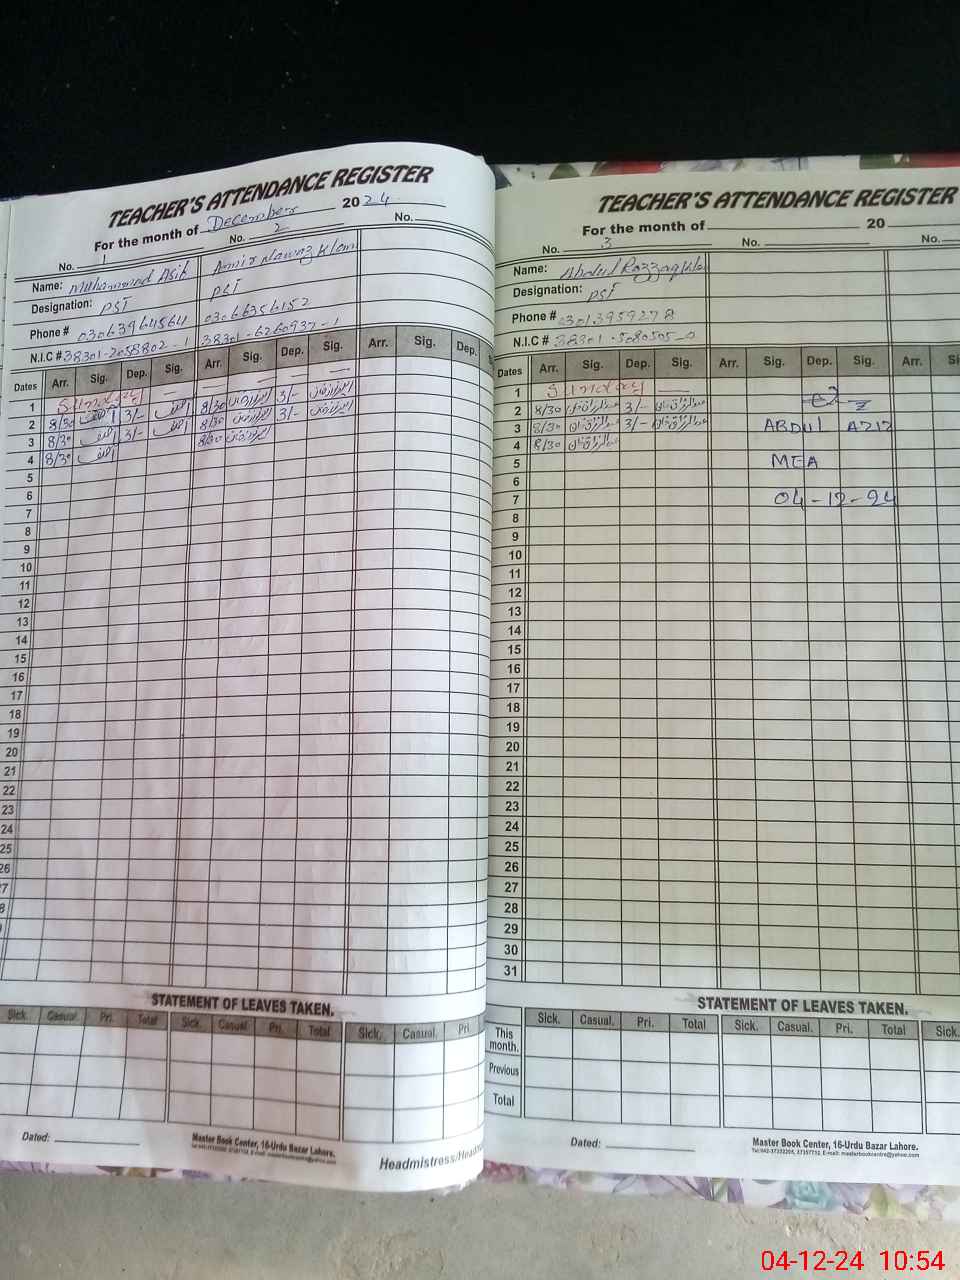 TEACHER'S ATTENDANCE REGISTER
For the month of December 2024
No. 1 No. 2 No.
Name: Muhammad Asif Amir Nawaz Khan
Designation: PST PST
Phone # 03063964564 03066356152
N.I.C # 38301-2058802-1 38301-6260937-1
Dates Arr. Sig. Dep. Sig. Arr. Sig. Dep. Sig. Arr. Sig. Dep.
1 Sunday
2 8/30 آصف 3/- آصف 8/30 3/-
3 8/30 آصف 3/- آصف 8/30 3/-
4 8/30 آصف 8/30
5
6
7
8
9
10
11
12
13
14
15
16
17
18
19
20
21
22
23
24
25
26
STATEMENT OF LEAVES TAKEN.
Sick. Casual. Pri. Total Sick. Casual Pri. Total Sick. Casual. Pri.
Dated:
Master Book Center, 16-Urdu Bazar Lahore.
TEACHER'S ATTENDANCE REGISTER
For the month of 20
No. 3 No. No.
Name: Abdul Razzaq
Designation: PST
Phone #
N.I.C #
Dates Arr. Sig. Dep. Sig. Arr. Sig. Dep. Sig. Arr.
1 Sunday
2 8/30 3/-
3 8/30 3/- ABDUL AZIZ
4 8/30
5 MEA
6
7 04-12-24
8
9
10
11
12
13
14
15
16
17
18
19
20
21
22
23
24
25
26
27
28
29
30
31
STATEMENT OF LEAVES TAKEN.
Sick. Casual. Pri. Total Sick. Casual. Pri. Total Sick.
This month.
Previous
Total
Dated:
Master Book Center, 16-Urdu Bazar Lahore.
04-12-24 10:54